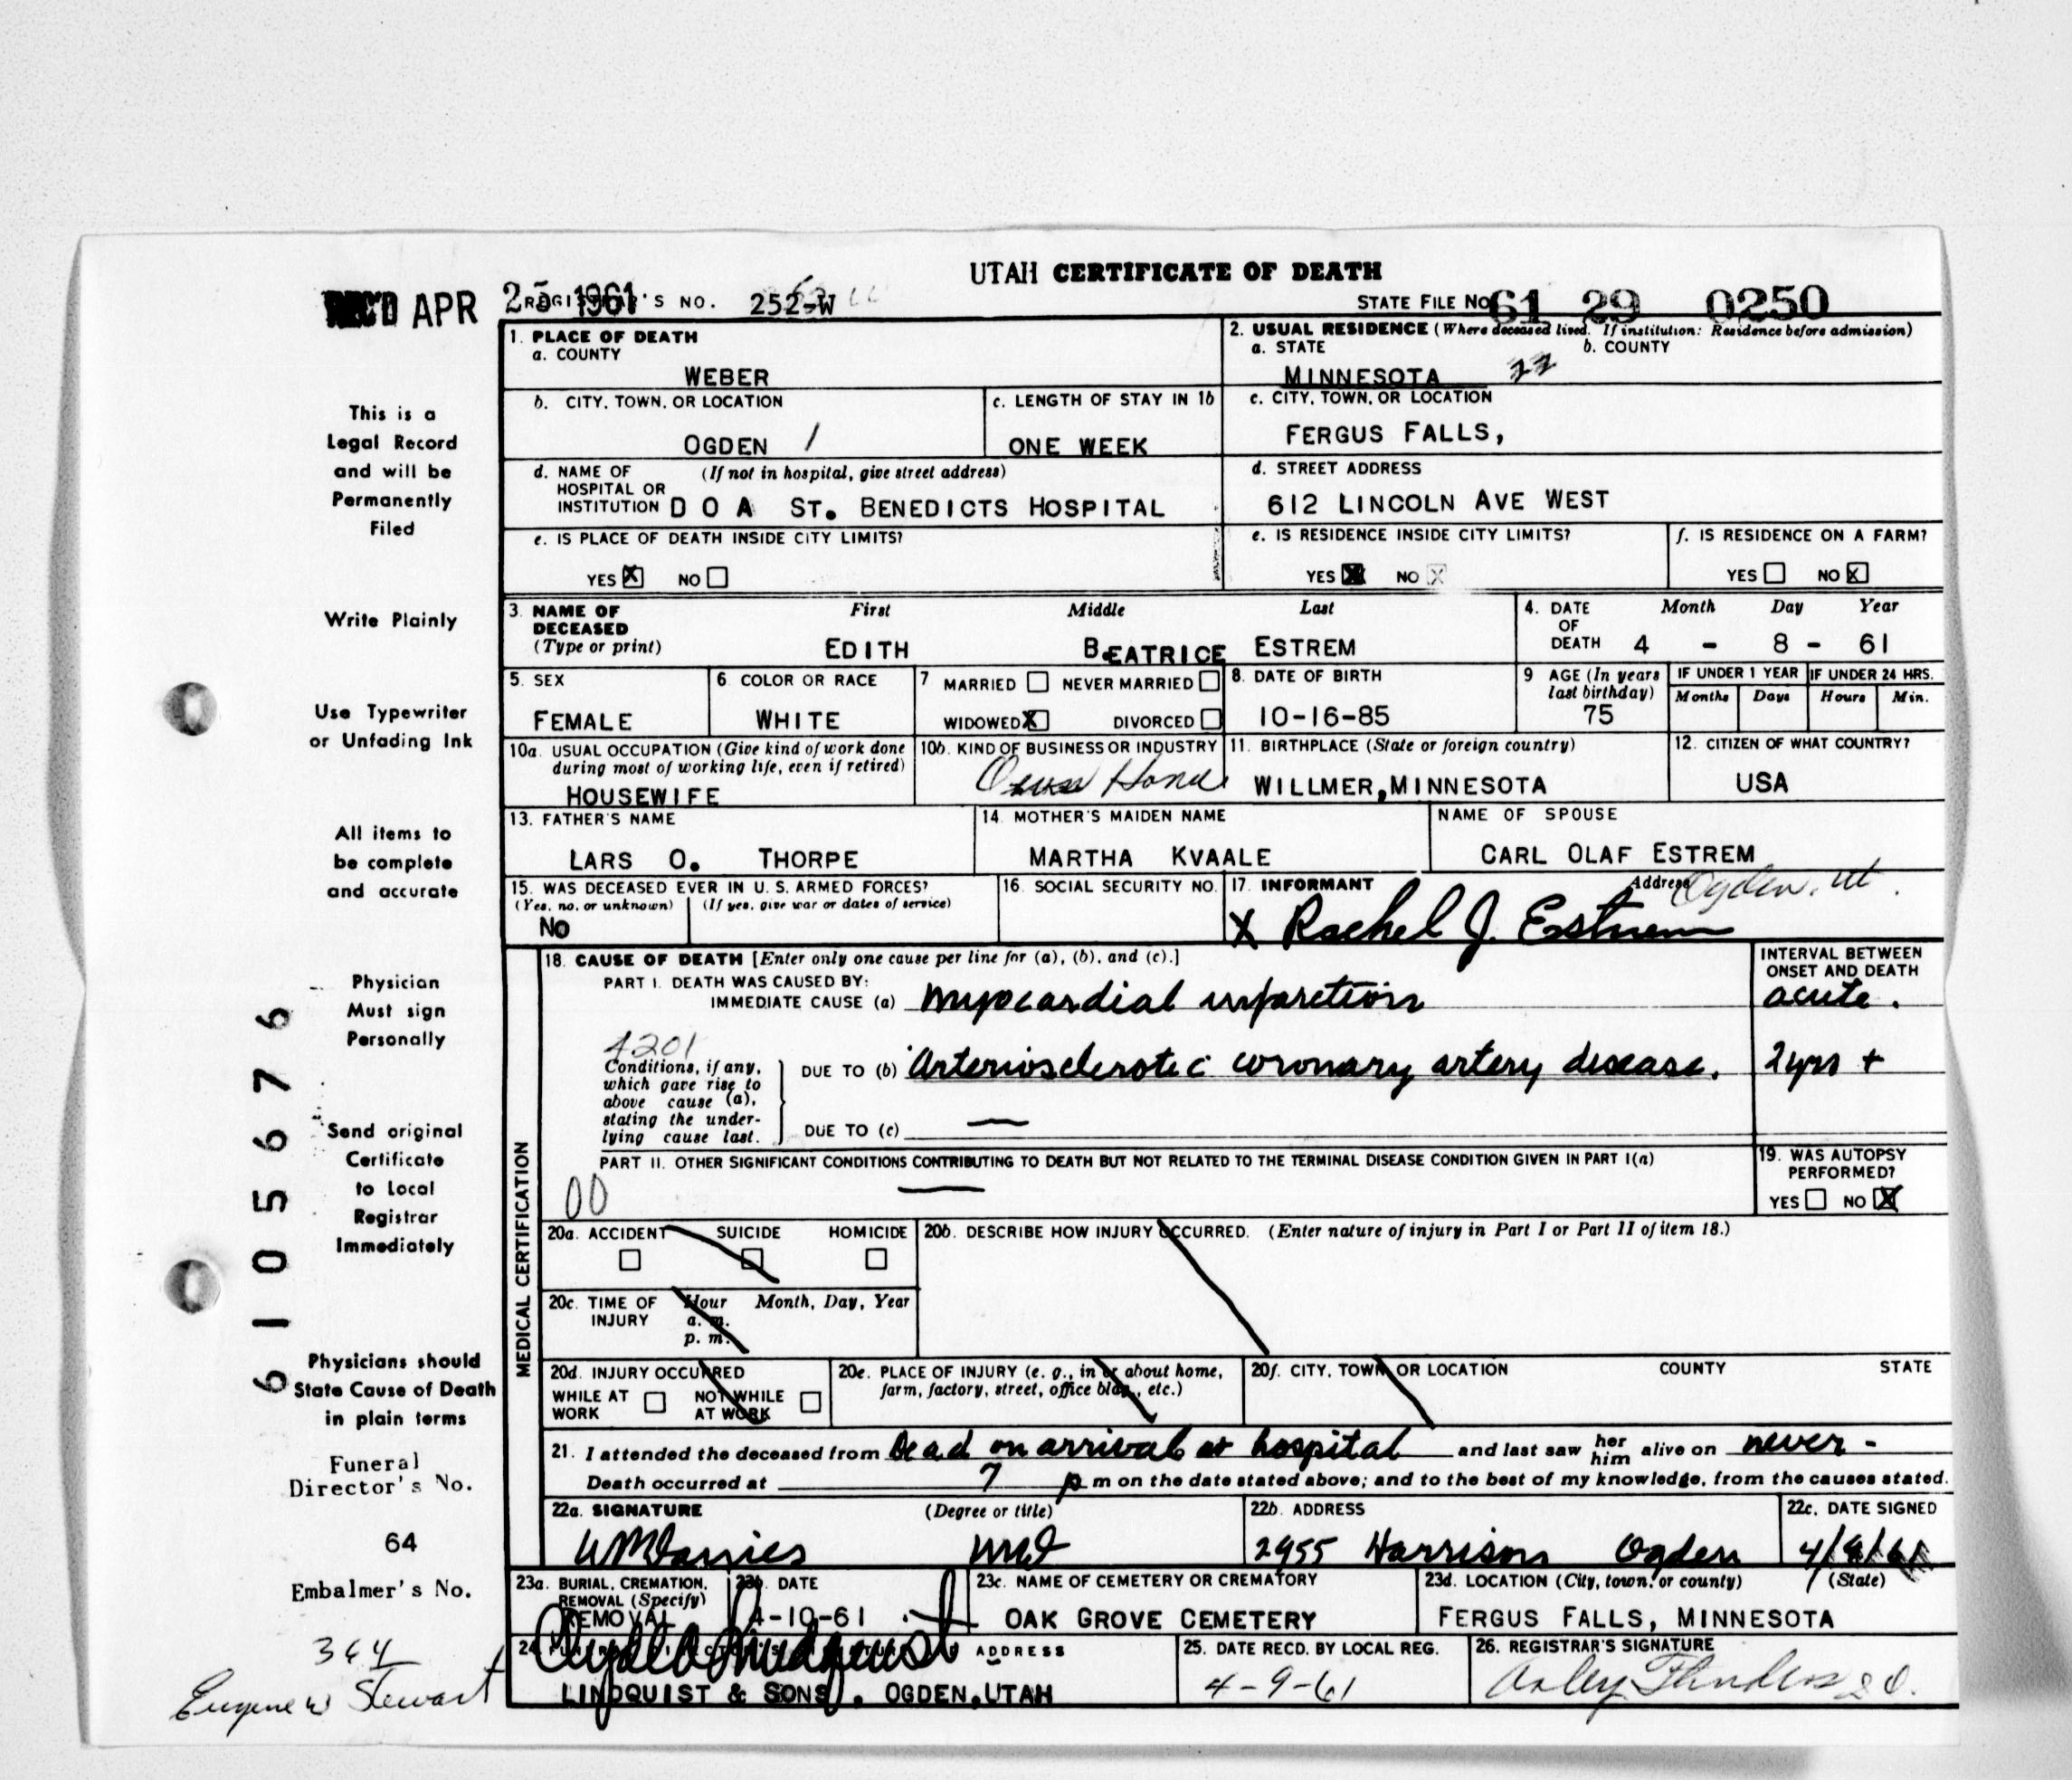 UTAH CERTIFICATE OF DEATH
REC'D APR 25 1961 REGISTRAR'S NO. 252-W
STATE FILE NO. 61 29 0250
This is a
Legal Record
and will be
Permanently
Filed
Write Plainly
Use Typewriter
or Unfading Ink
All items to
be complete
and accurate
Physician
Must sign
Personally
Send original
Certificate
to Local
Registrar
Immediately
Physicians should
State Cause of Death
in plain terms
Funeral
Director's No.
64
Embalmer's No.
364
Eugene W Stewart
6105676
1. PLACE OF DEATH
a. COUNTY
WEBER
2. USUAL RESIDENCE (Where deceased lived. If institution: Residence before admission)
a. STATE b. COUNTY
MINNESOTA 22
b. CITY, TOWN, OR LOCATION
OGDEN /
c. LENGTH OF STAY IN 1b
ONE WEEK
c. CITY, TOWN, OR LOCATION
FERGUS FALLS,
d. NAME OF (If not in hospital, give street address)
HOSPITAL OR
INSTITUTION D O A ST. BENEDICTS HOSPITAL
d. STREET ADDRESS
612 LINCOLN AVE WEST
e. IS PLACE OF DEATH INSIDE CITY LIMITS?
YES X NO
e. IS RESIDENCE INSIDE CITY LIMITS?
YES X NO X
f. IS RESIDENCE ON A FARM?
YES NO X
3. NAME OF First Middle Last
DECEASED
(Type or print) EDITH BEATRICE ESTREM
4. DATE Month Day Year
OF
DEATH 4 - 8 - 61
5. SEX
FEMALE
6. COLOR OR RACE
WHITE
7 MARRIED NEVER MARRIED
WIDOWED X DIVORCED
8. DATE OF BIRTH
10-16-85
9 AGE (In years
last birthday)
75
IF UNDER 1 YEAR IF UNDER 24 HRS.
Months Days Hours Min.
10a. USUAL OCCUPATION (Give kind of work done
during most of working life, even if retired)
HOUSEWIFE
10b. KIND OF BUSINESS OR INDUSTRY
Own Home
11. BIRTHPLACE (State or foreign country)
WILLMER, MINNESOTA
12. CITIZEN OF WHAT COUNTRY?
USA
13. FATHER'S NAME
LARS O. THORPE
14. MOTHER'S MAIDEN NAME
MARTHA KVAALE
NAME OF SPOUSE
CARL OLAF ESTREM
15. WAS DECEASED EVER IN U. S. ARMED FORCES?
(Yes, no, or unknown) (If yes, give war or dates of service)
NO
16. SOCIAL SECURITY NO.
17. INFORMANT Address Ogden, Ut.
X Rachel J. Estrem
MEDICAL CERTIFICATION
18. CAUSE OF DEATH [Enter only one cause per line for (a), (b), and (c).]
INTERVAL BETWEEN
ONSET AND DEATH
PART I. DEATH WAS CAUSED BY:
IMMEDIATE CAUSE (a) myocardial infarction acute.
4201
Conditions, if any,
which gave rise to
above cause (a),
stating the under-
lying cause last.
DUE TO (b) Arteriosclerotic coronary artery disease. 2 yrs +
DUE TO (c) —
PART II. OTHER SIGNIFICANT CONDITIONS CONTRIBUTING TO DEATH BUT NOT RELATED TO THE TERMINAL DISEASE CONDITION GIVEN IN PART I(a)
00 —
19. WAS AUTOPSY
PERFORMED?
YES NO X
20a. ACCIDENT SUICIDE HOMICIDE
20b. DESCRIBE HOW INJURY OCCURRED. (Enter nature of injury in Part I or Part II of item 18.)
20c. TIME OF Hour Month, Day, Year
INJURY a. m.
p. m.
20d. INJURY OCCURRED
WHILE AT NOT WHILE
WORK AT WORK
20e. PLACE OF INJURY (e. g., in or about home,
farm, factory, street, office bldg., etc.)
20f. CITY, TOWN, OR LOCATION COUNTY STATE
21. I attended the deceased from Dead on arrival at hospital and last saw her him alive on never -
Death occurred at 7 p m on the date stated above; and to the best of my knowledge, from the causes stated.
22a. SIGNATURE (Degree or title)
MD
22b. ADDRESS
2955 Harrison Ogden
22c. DATE SIGNED
4/8/61
23a. BURIAL, CREMATION,
REMOVAL (Specify)
REMOVAL
23b. DATE
4-10-61
23c. NAME OF CEMETERY OR CREMATORY
OAK GROVE CEMETERY
23d. LOCATION (City, town, or county) (State)
FERGUS FALLS, MINNESOTA
24. ADDRESS
LINDQUIST & SONS, OGDEN, UTAH
25. DATE RECD. BY LOCAL REG.
4-9-61
26. REGISTRAR'S SIGNATURE